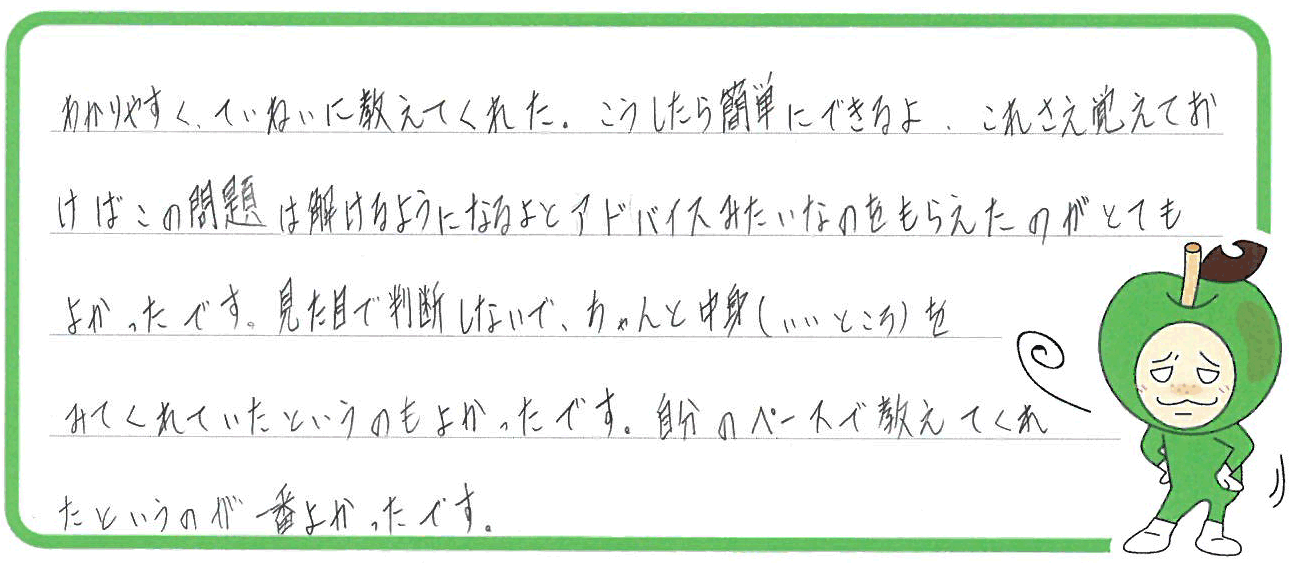 わかりやすく、ていねいに教えてくれた。こうしたら簡単にできるよ、これさえ覚えてお
けばこの問題は解けるようになるよとアドバイスみたいなのをもらえたのがとても
よかったです。見た目で判断しないで、ちゃんと中身(いいところ)を
みてくれていたというのもよかったです。自分のペースで教えてくれ
たというのが一番よかったです。